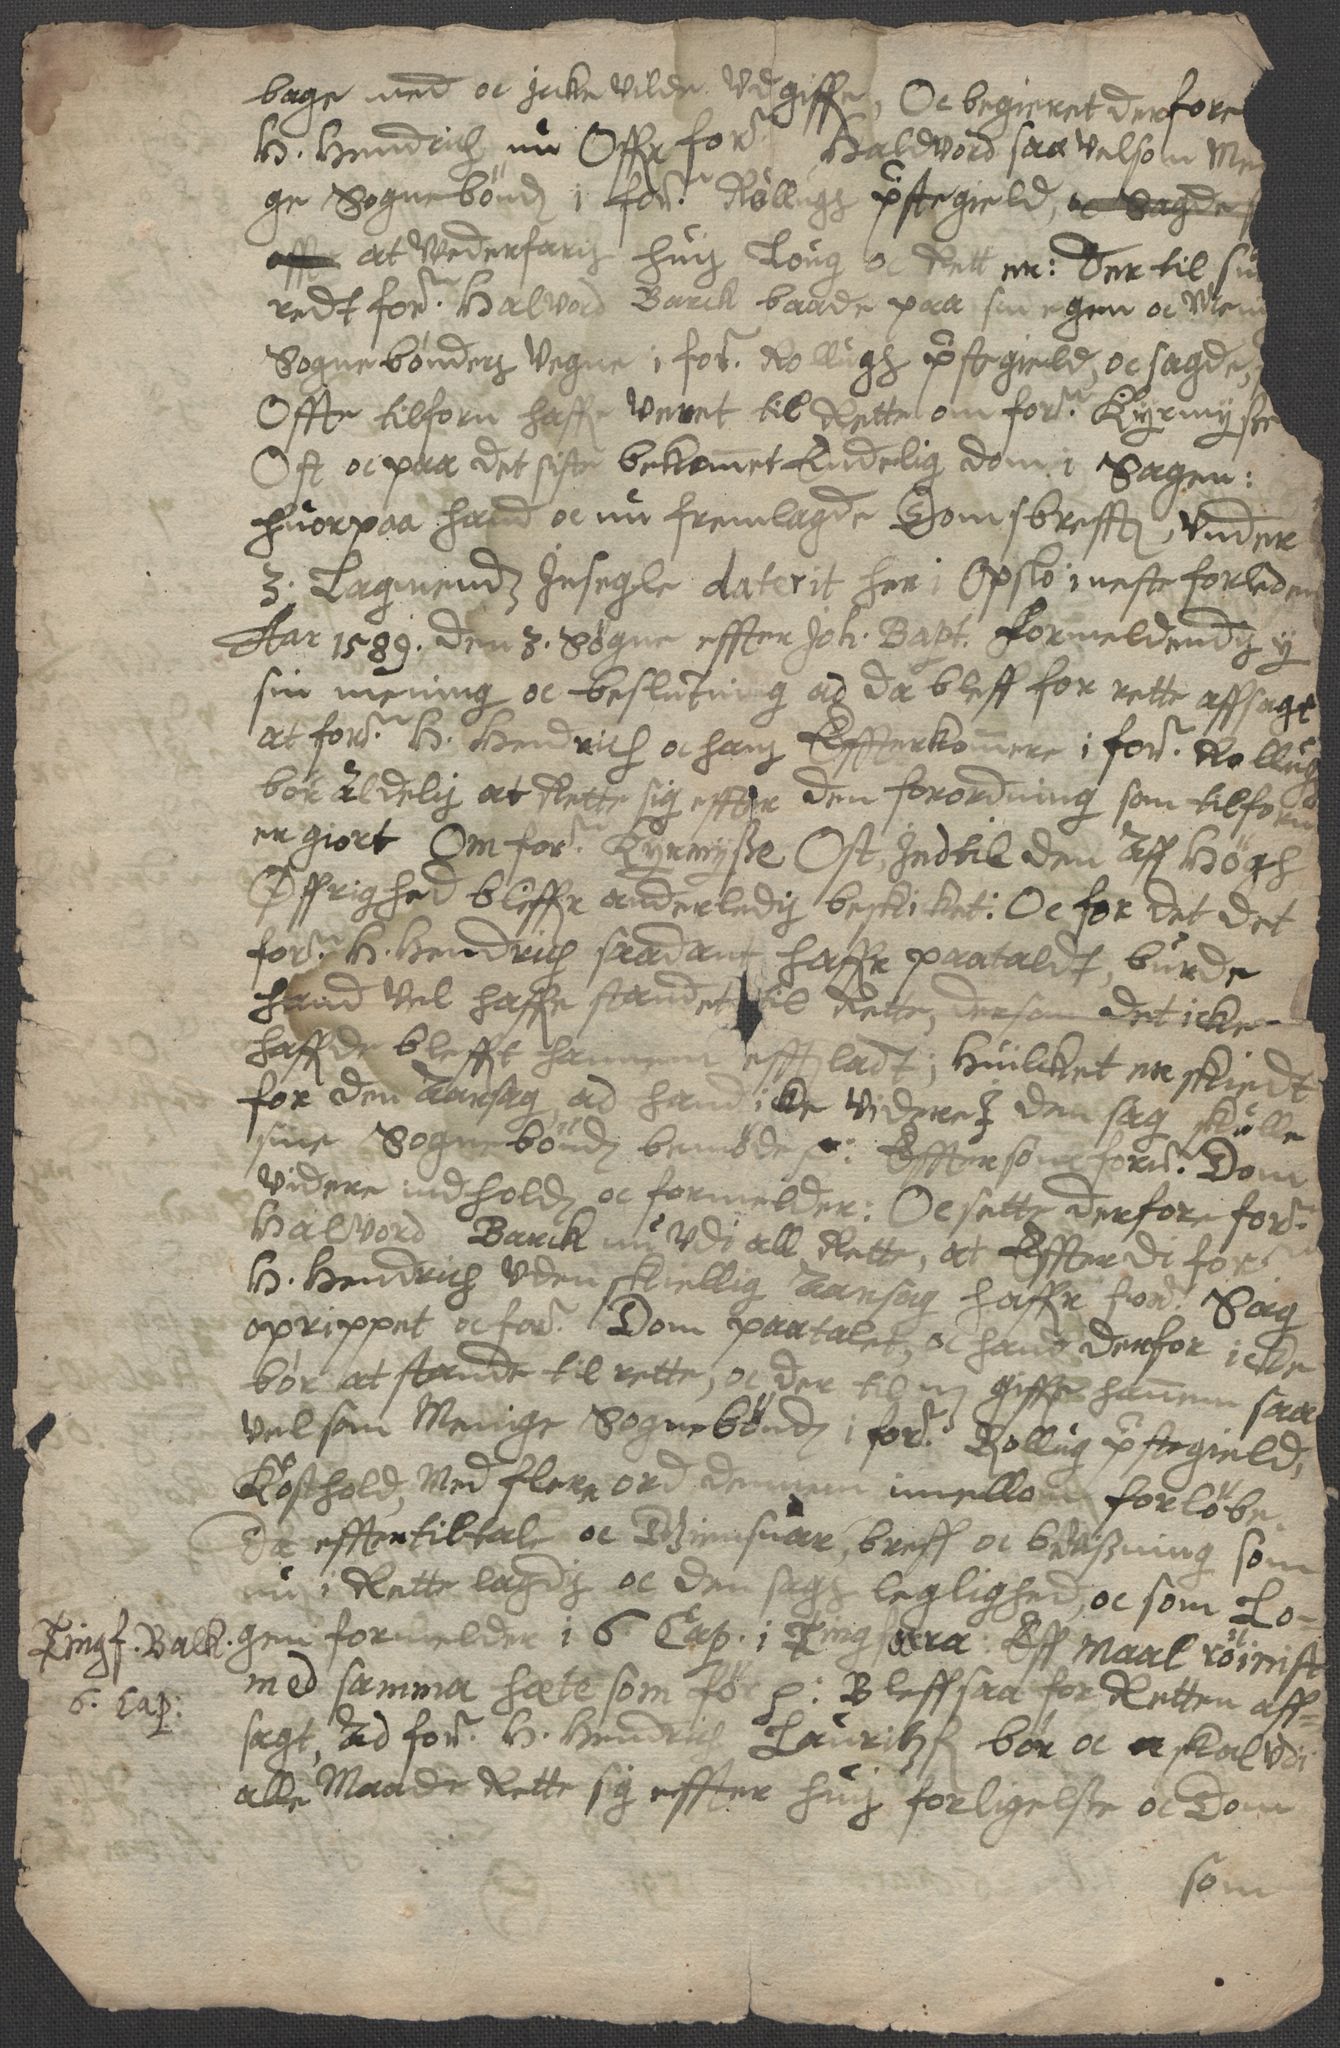 bage med oc icke vilde Vdgiffe, Oc begieret derfore
H. Hendrich nu Offr for: Haldvord saa velsom Me
ge Sognebönd i for: Rollugs pstegield, oc Sagde
offr at Vederfaris huis Loug oc Rett er: Der til sua
redt for: Halvord Barck baade paa sin egen oc Meni
Sognebönders Vegne i for: Rollugs pstegield, oc sagde,
Offte tilforn haffe Veret til Rette om for: Kyrmysse
Ost oc paa det siste bekommet Endelig dom i Sagen:
huorpaa hand oc nu fremlagde Domsbreff, Vnder
3. Lagmends Insegle daterit her i Opslo i neste forleden
Aar 1589. den 3. Sögne effter Joh. Bapt. formeldendis y
sin mening oc beslutning ad da bleff for rette affsagt
at for: H. Hendrich oc hans Effterkommere i for: Rollug
bör aldelis at Rette sig effter den forordning som tilforn
er giort Om for: Kyrmysse Ost, Indtil den aff Högh
Øffrighed bliffr anderledis beskicket: Oc for det det
for: H. Hendrich saadant haffr paataldt, burde
hand vel haffe standet til Rette, dersom det icke
haffde blefft hannem effterladt; huilcket er skiedt
for den Aarsag, ad hand icke videre I den sag skulle
sine Sognebönd bemöde p: Effter som for: Dom
videre indhold oc formelder: Oc sette derfore for:
Halvord Barck nu vdi all Rette, at Effterdi for:
H. Hendrich vden skiellig Aarsag haffr for: Sag
oprippet oc for: Dom paatalet, oc hand derfor icke
bör at stande til rette, oc der til giffe hannem saa
vel som Menige Sognebönd i for: Rollug pstegield,
Kosthold, Med flere ord dennem imellom forlöbe.
Da effter tiltale oc Giensuar, breff oc beuissning som
nu i Rette lagdis oc den sags leglighed, oc som Lo-
gen formelder i 6 Cap. i Tingfara: Eff Maal röinist
med samma hæte som för p: Bleff saa for Retten aff=
sagt, Ad for: H. Hendrich Lauritzs bör oc skal vdi
alle Maade Rette sig effter huis forligelsse oc Dom
som
Tingf. Balk.
6. Cap: